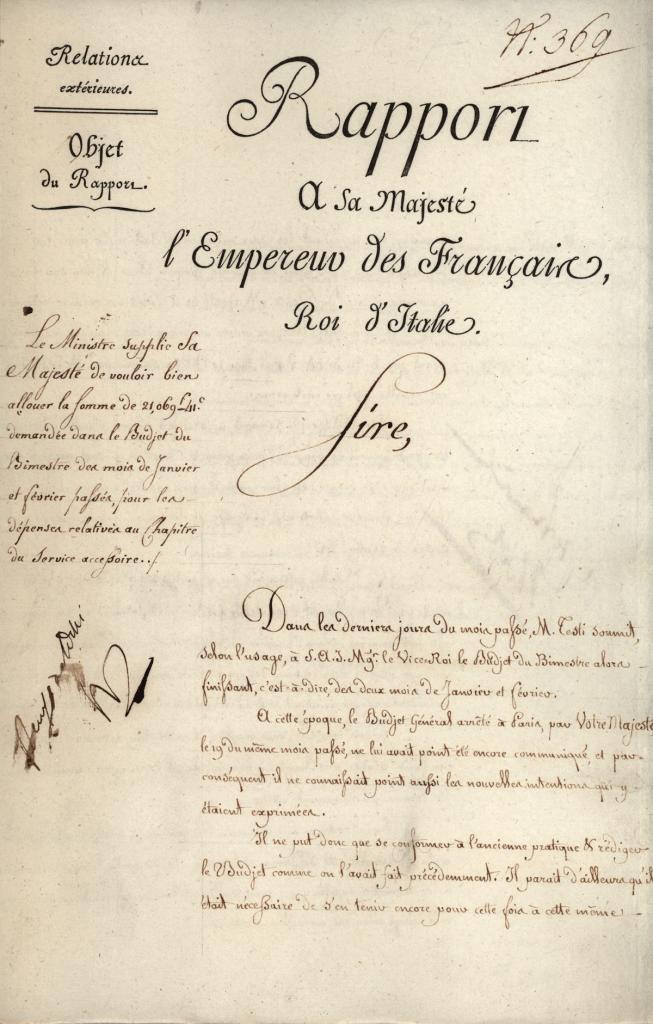 N.° 369
Relations
extérieures.
Objet
du Rapport.
Rapport
A Sa Majesté
l'Empereur des Français,
Roi d'Italie.
Sire,
Le Ministre supplie Sa
Majesté de vouloir bien
allouer la somme de 21,069.f 41.c
demandée dans le Budjet du
Bimestre des mois de Janvier
et février passés, pour les
dépenses relatives au Chapitre
du Service accessoire./.
Dans les derniers jours du mois passé, M. Testi soumit,
selon l'usage, à S.A.I. Mgr. le Vice-Roi le Budjet du Bimestre alors
finissant, c'est-à-dire, des deux mois de Janvier et février.
A cette époque, le Budjet Général arrêté à Paris, par Votre Majesté
le 19 du même mois passé, ne lui avait point été encore communiqué, et par
conséquent il ne connaissait point aussi les nouvelles intentions qui y
étaient exprimées.
Il ne put donc que se conformer à l'ancienne pratique & rédiger
le Budjet comme on l'avait fait précédemment. Il parait d'ailleurs qu'il
était nécessaire de s'en tenir encore pour cette fois à cette même